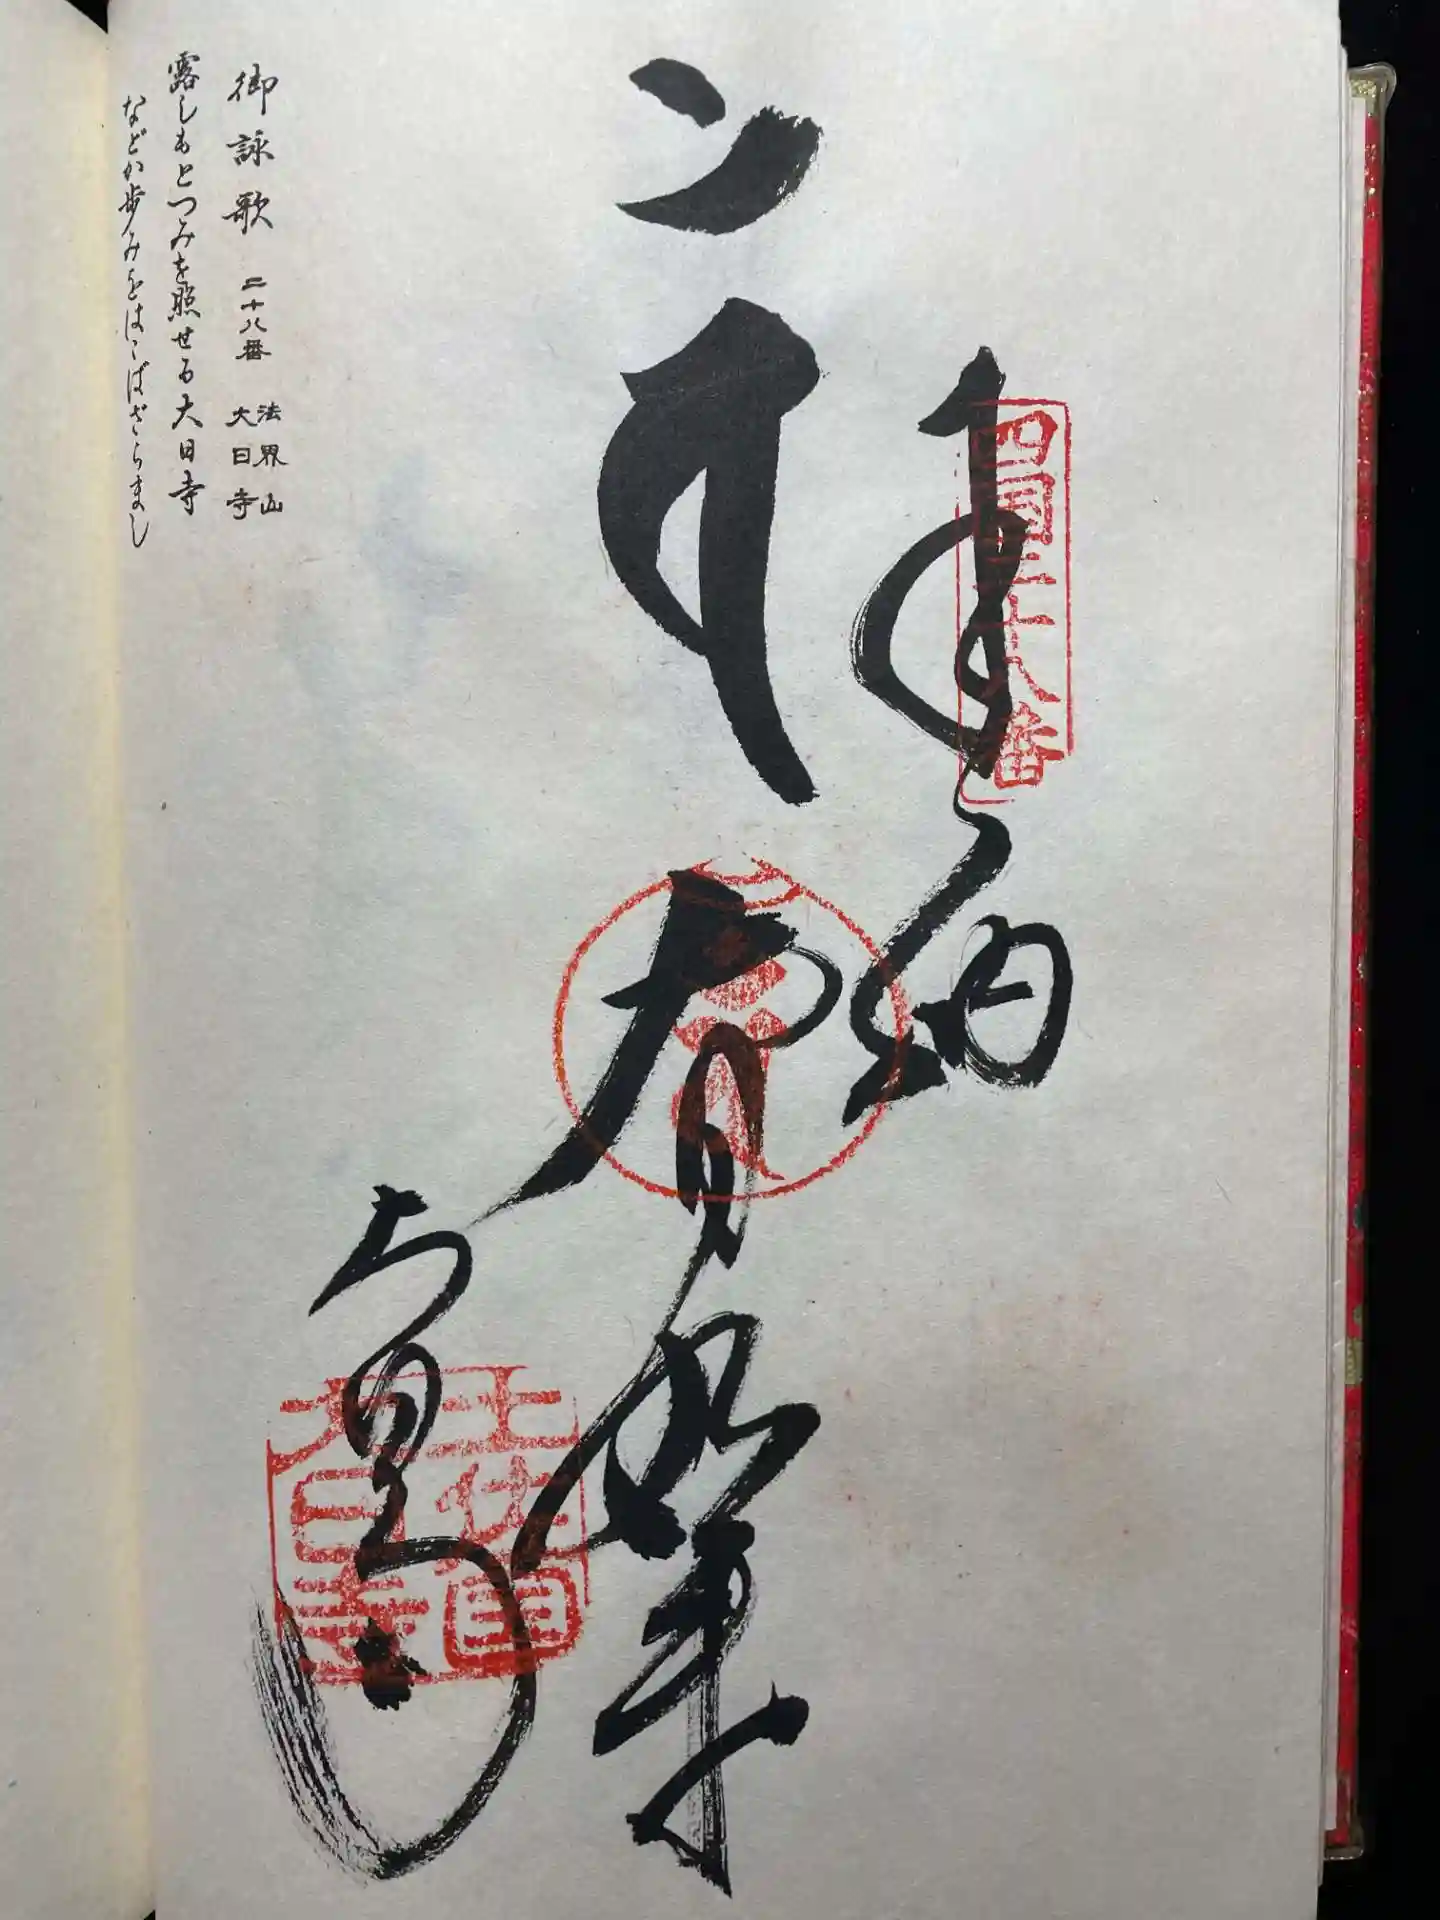 奉納
四国二十八番
大日如来
大日寺
土佐国
大日寺
御詠歌 二十八番 法界山 大日寺
露しもとつみを照せる大日寺
などか歩みをはこばざらまし